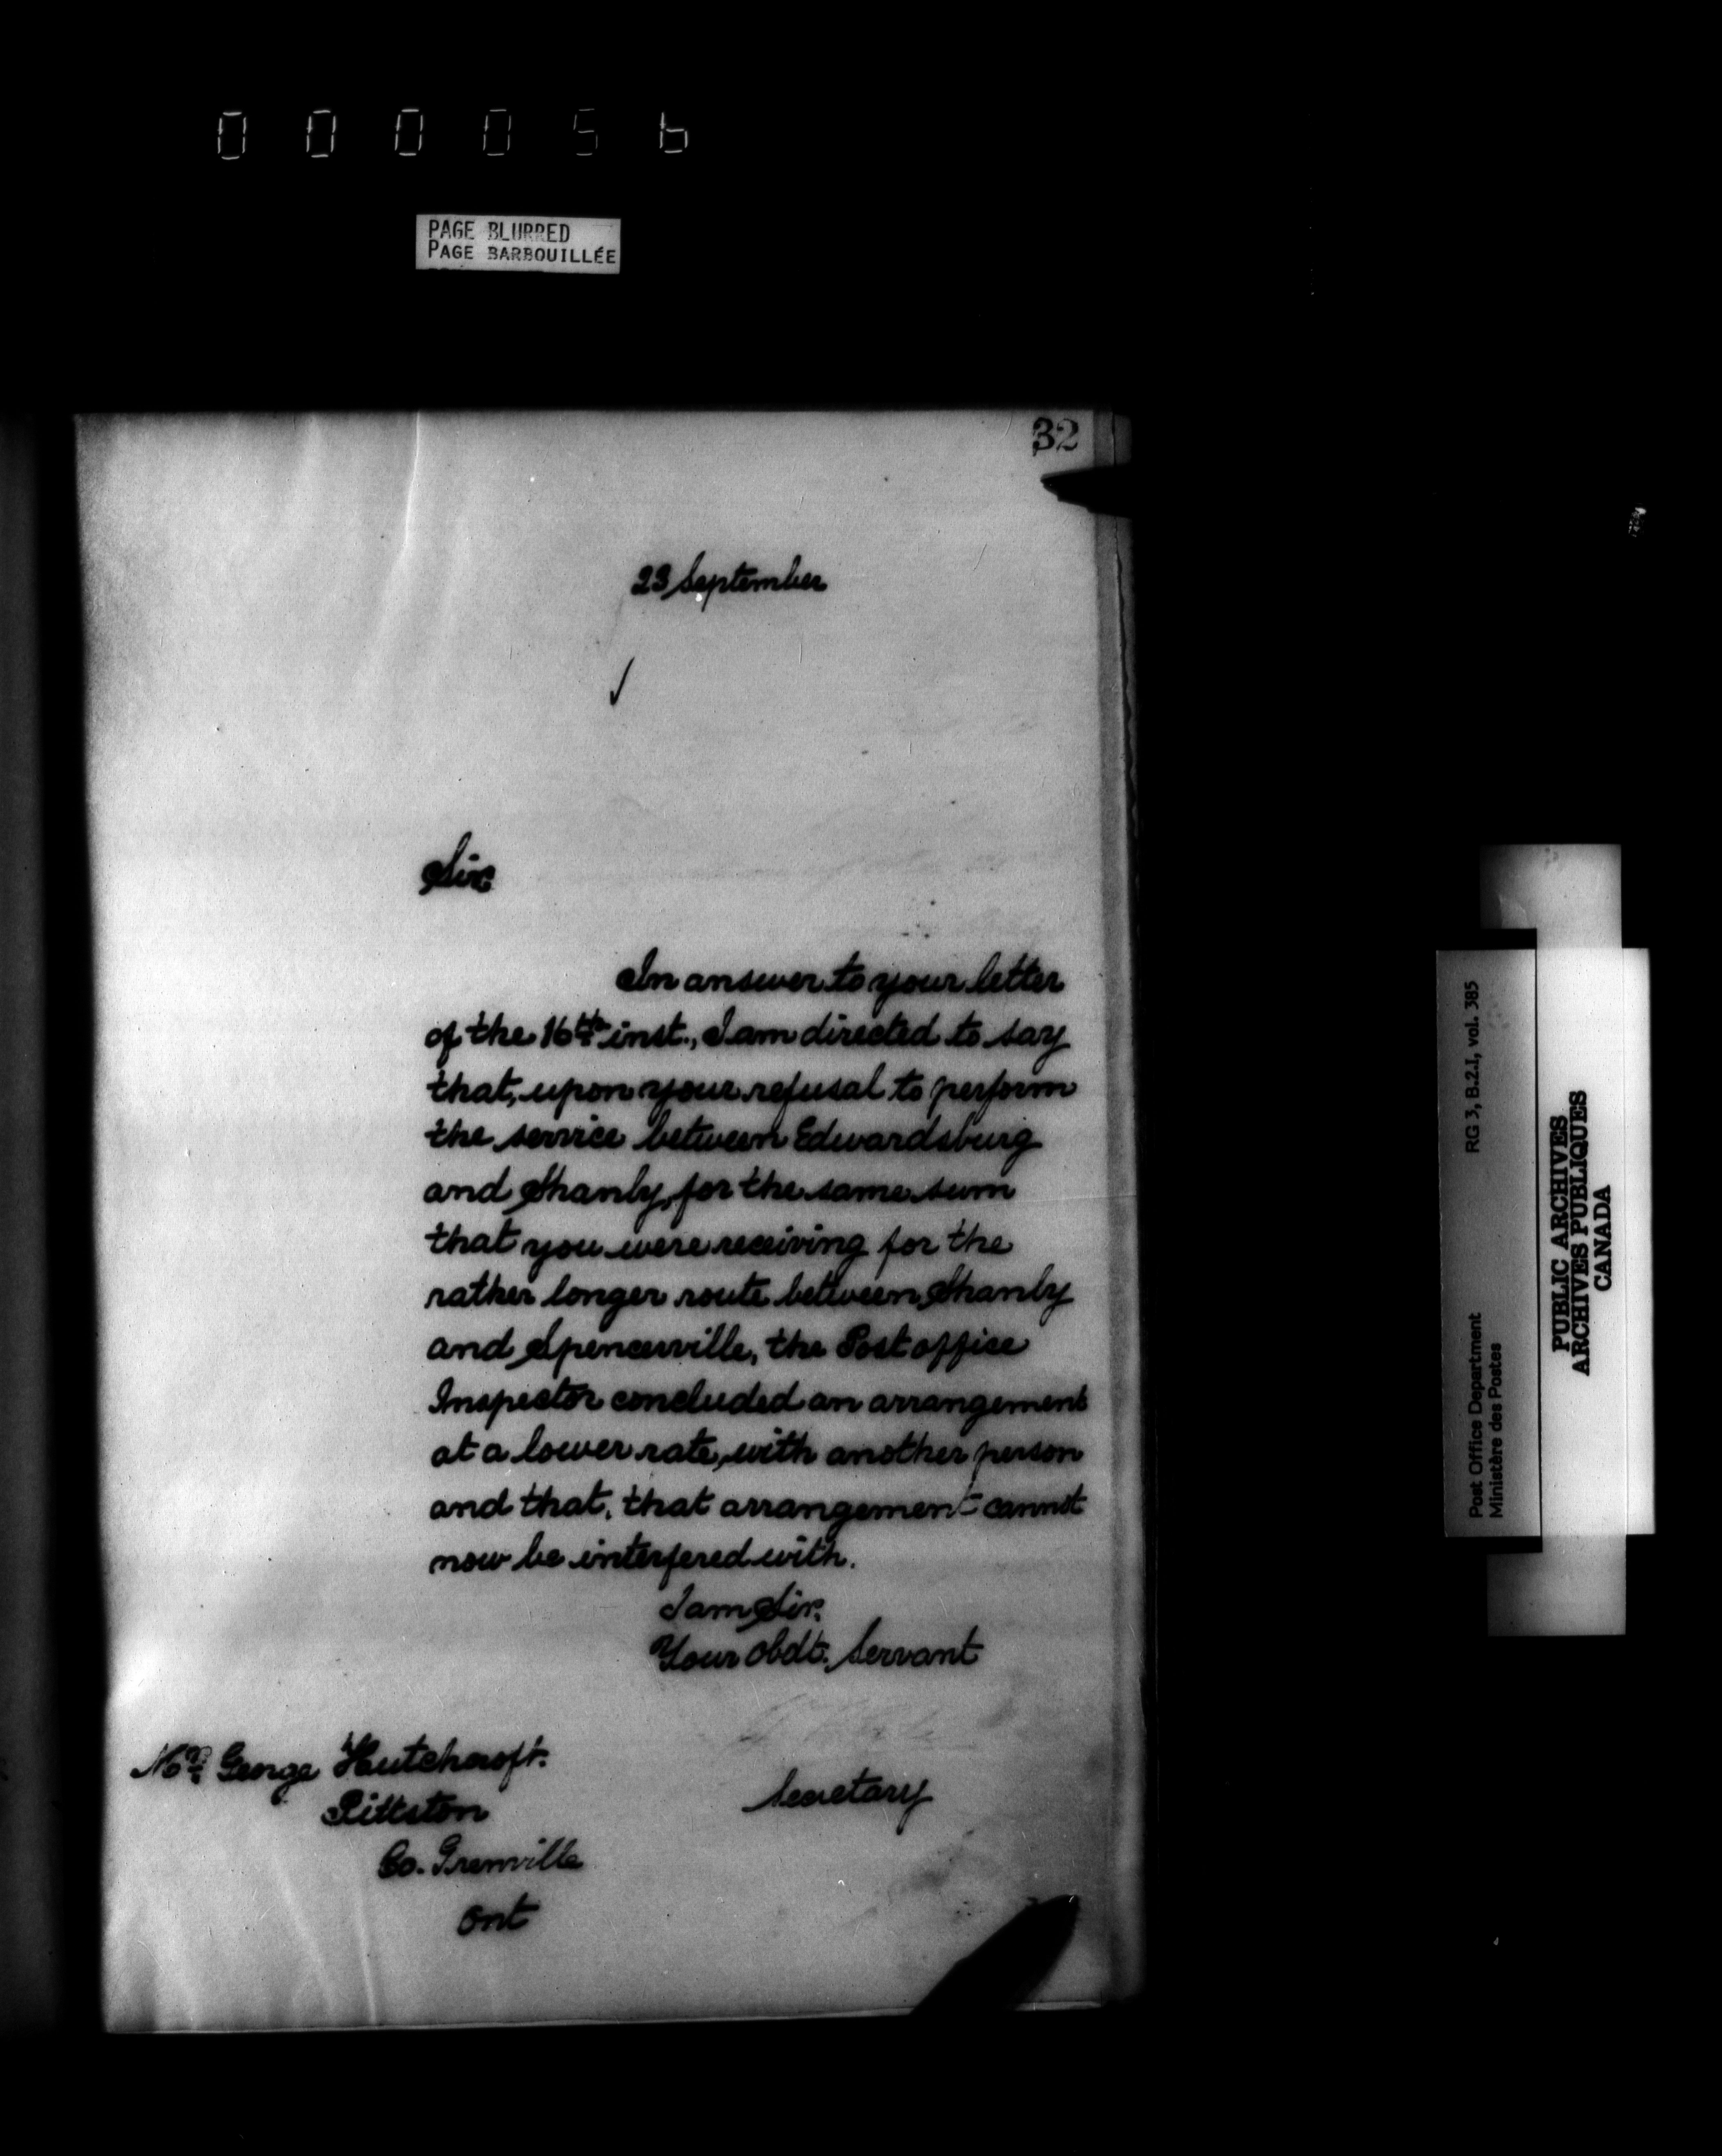 000056
PAGE BLURRED
PAGE BARBOUILLÉE
32
23 September
Sir,
In answer to your letter
of the 16th inst., I am directed to say
that, upon your refusal to perform
the service between Edwardsburg
and Shanly, for the same sum
that you were receiving for the
rather longer route between Shanly
and Spencerville, the Post office
Inspector concluded an arrangement
at a lower rate, with another person
and that, that arrangement cannot
now be interfered with.
I am Sir,
Your Obdt. Servant
Secretary
Mr. George Hutchcroft.
Pittston
Co. Grenville
Ont
Post Office Department
Ministère des Postes
RG 3, B.2.I, vol. 385
PUBLIC ARCHIVES
ARCHIVES PUBLIQUES
CANADA